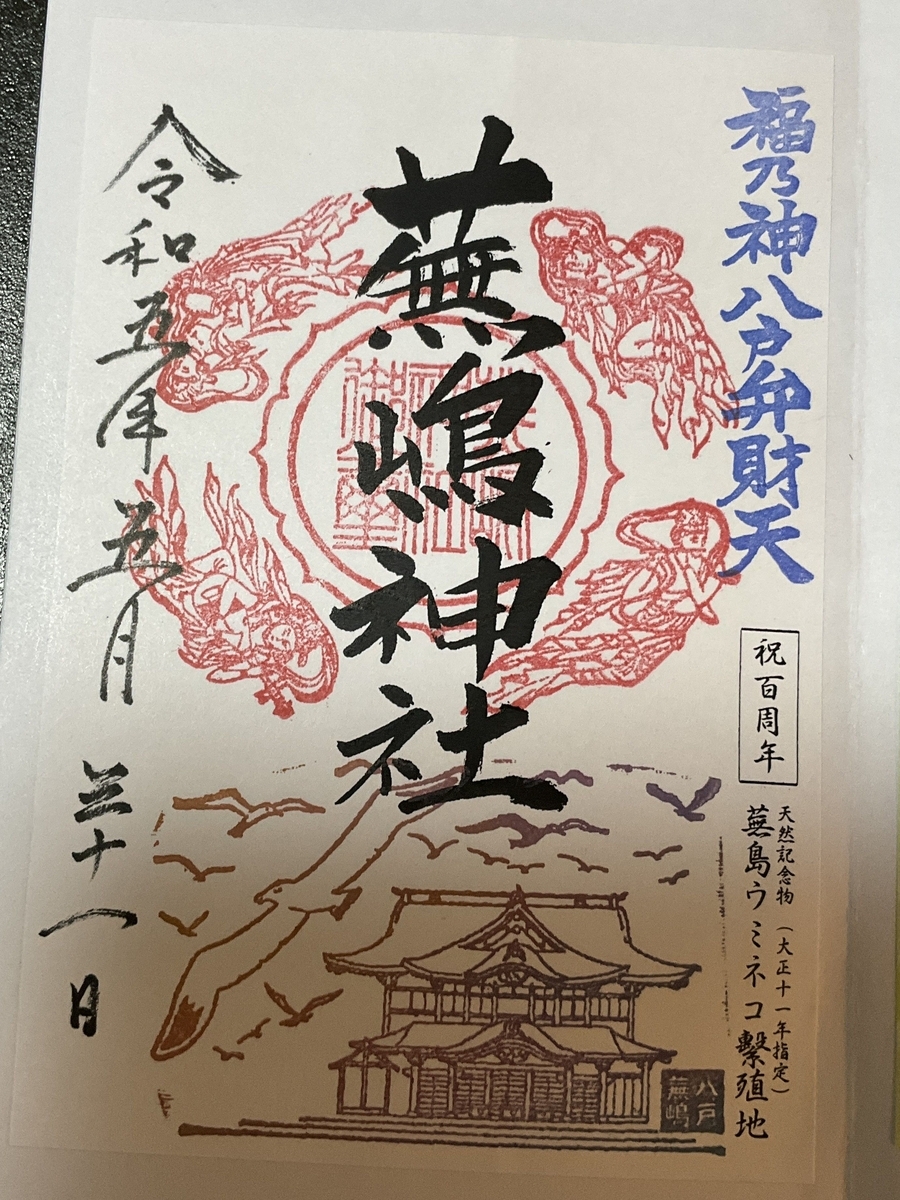 福乃神八戸弁財天
祝百周年
天然記念物(大正十一年指定)
蕪島ウミネコ繫殖地
蕪嶋神社
八戸
蕪嶋
令和五年五月三十一日